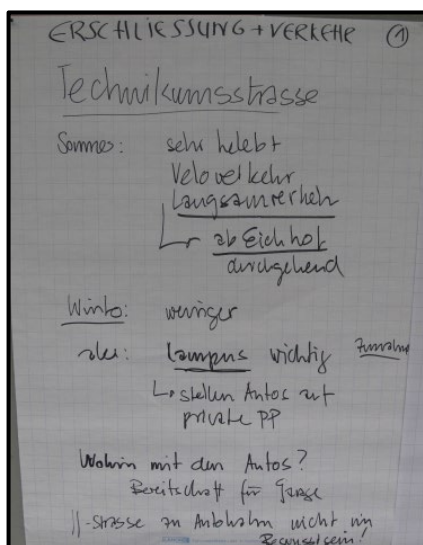 ERSCHLIESSUNG + VERKEHR ①
Technikumsstrasse
Sommer: sehr belebt
Veloverkehr
Langsamverkehr
ab Eichhof
durchgehend
Winter: weniger
aber: Campus wichtig Zunahme
↳ stellen Autos auf
private PP
Wohin mit den Autos?
Bereitschaft für Garage
||-Strasse zu Autobahn nicht im
Bewusstsein!